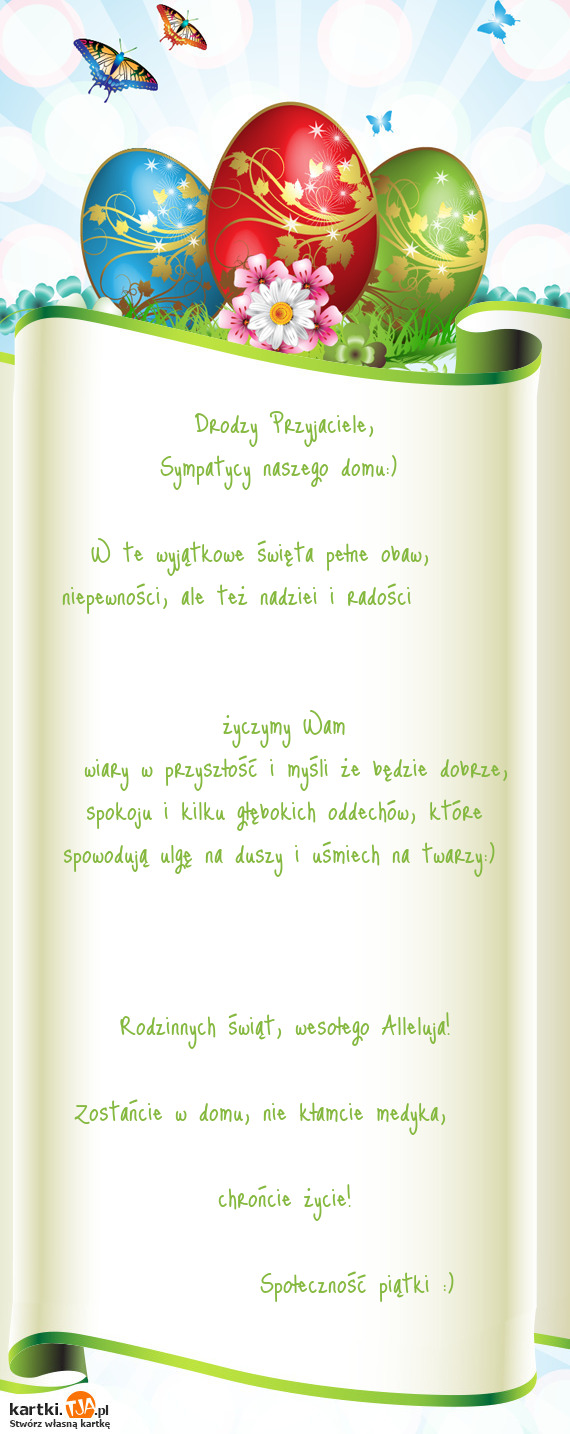 Drodzy Przyjaciele,
Sympatycy naszego domu:)
W te wyjątkowe święta pełne obaw,
niepewności, ale też nadziei i radości
życzymy Wam
wiary w przyszłość i myśli że będzie dobrze,
spokoju i kilku głębokich oddechów, które
spowodują ulgę na duszy i uśmiech na twarzy:)
Rodzinnych świąt, wesołego Alleluja!
Zostańcie w domu, nie kłamcie medyka,
chrońcie życie!
Społeczność piątki :)
kartki.TJA.pl
Stwórz własną kartkę